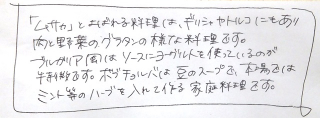 「ムサカ」とよばれる料理は、ギリシャやトルコにもあり
肉と野菜のグラタンの様な料理です。
ブルガリア風はソースにヨーグルトを使っているのが
特徴です。ボブチョルバは豆のスープで、本場では
ミント等のハーブを入れて作る家庭料理です。